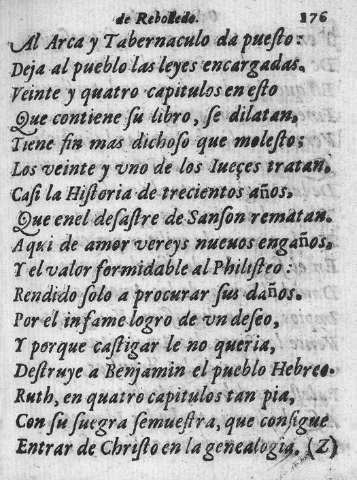 de Rebolledo. 176
Al Arca y Tabernaculo da puesto:
Deja al pueblo las leyes encargadas.
Veinte y quatro capitulos en esto
Que contiene su libro, se dilatan,
Tiene fin mas dichoso que molesto;
Los veinte y vno de los Iueçes tratan,
Casi la Historia de trecientos años,
Que enel desastre de Sanson rematan.
Aqui de amor vereys nueuos engaños,
Y el valor formidable al Philisteo:
Rendido solo a procurar sus daños.
Por el infame logro de vn deseo,
Y porque castigar le no queria,
Destruye a Benjamin el pueblo Hebreo.
Ruth, en quatro capitulos tan pia,
Con su suegra semuestra, que consigue
Entrar de Christo en la genealogia. (Z)